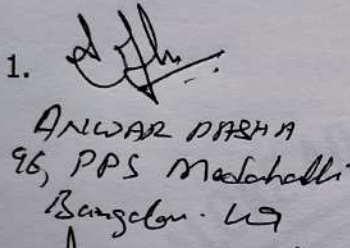 1.
ANWAR PASHA
96, PPS Medahalli
Bangalore. 49